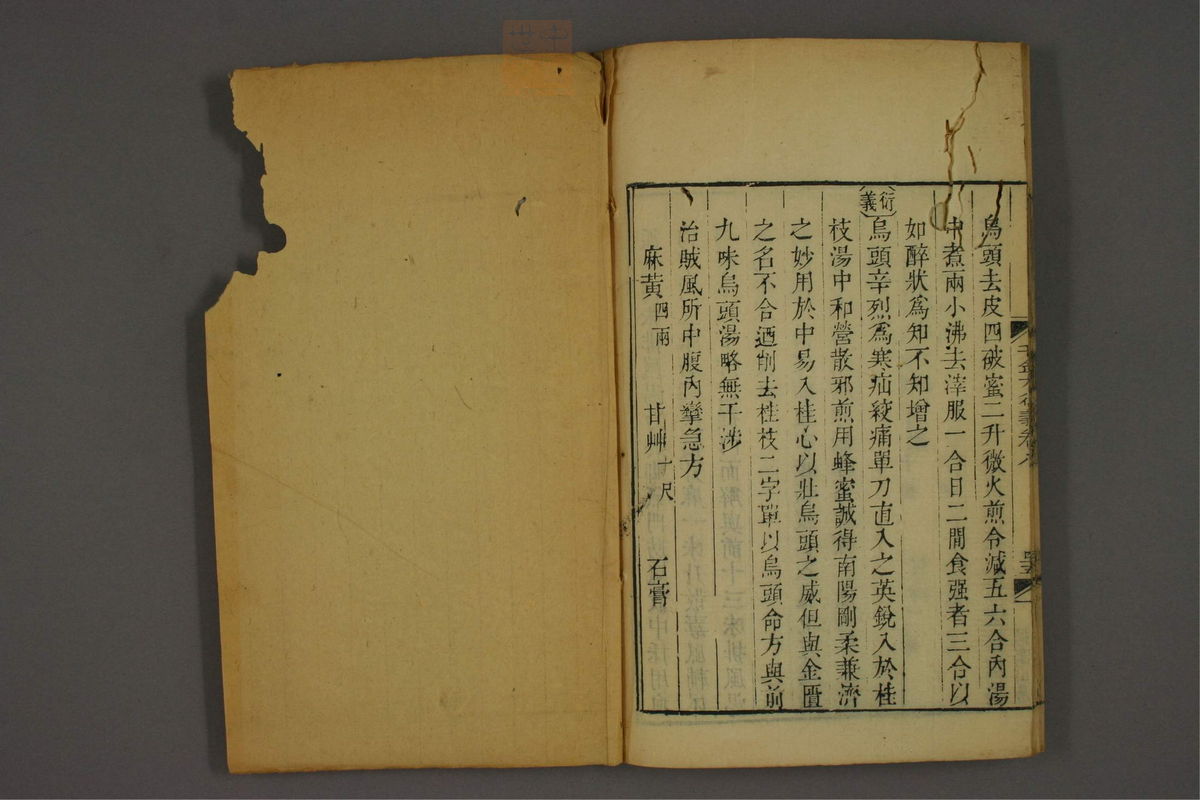 烏頭去皮四破蜜二升微火煎令減五六合內湯
中煮兩小沸去滓服一合日二閒食强者三合以
如醉狀爲知不知增之
衍義
烏頭辛烈爲寒疝絞痛單刀直入之英銳入於桂
枝湯中和營散邪煎用蜂蜜誠得南陽剛柔兼濟
之妙用於中易入桂心以壯烏頭之威但與金匱
之名不合迺削去桂枝二字單以烏頭命方與前
九味烏頭湯略無干涉
治賊風所中腹內攣急方
麻黃 四兩 甘艸 一尺 石膏